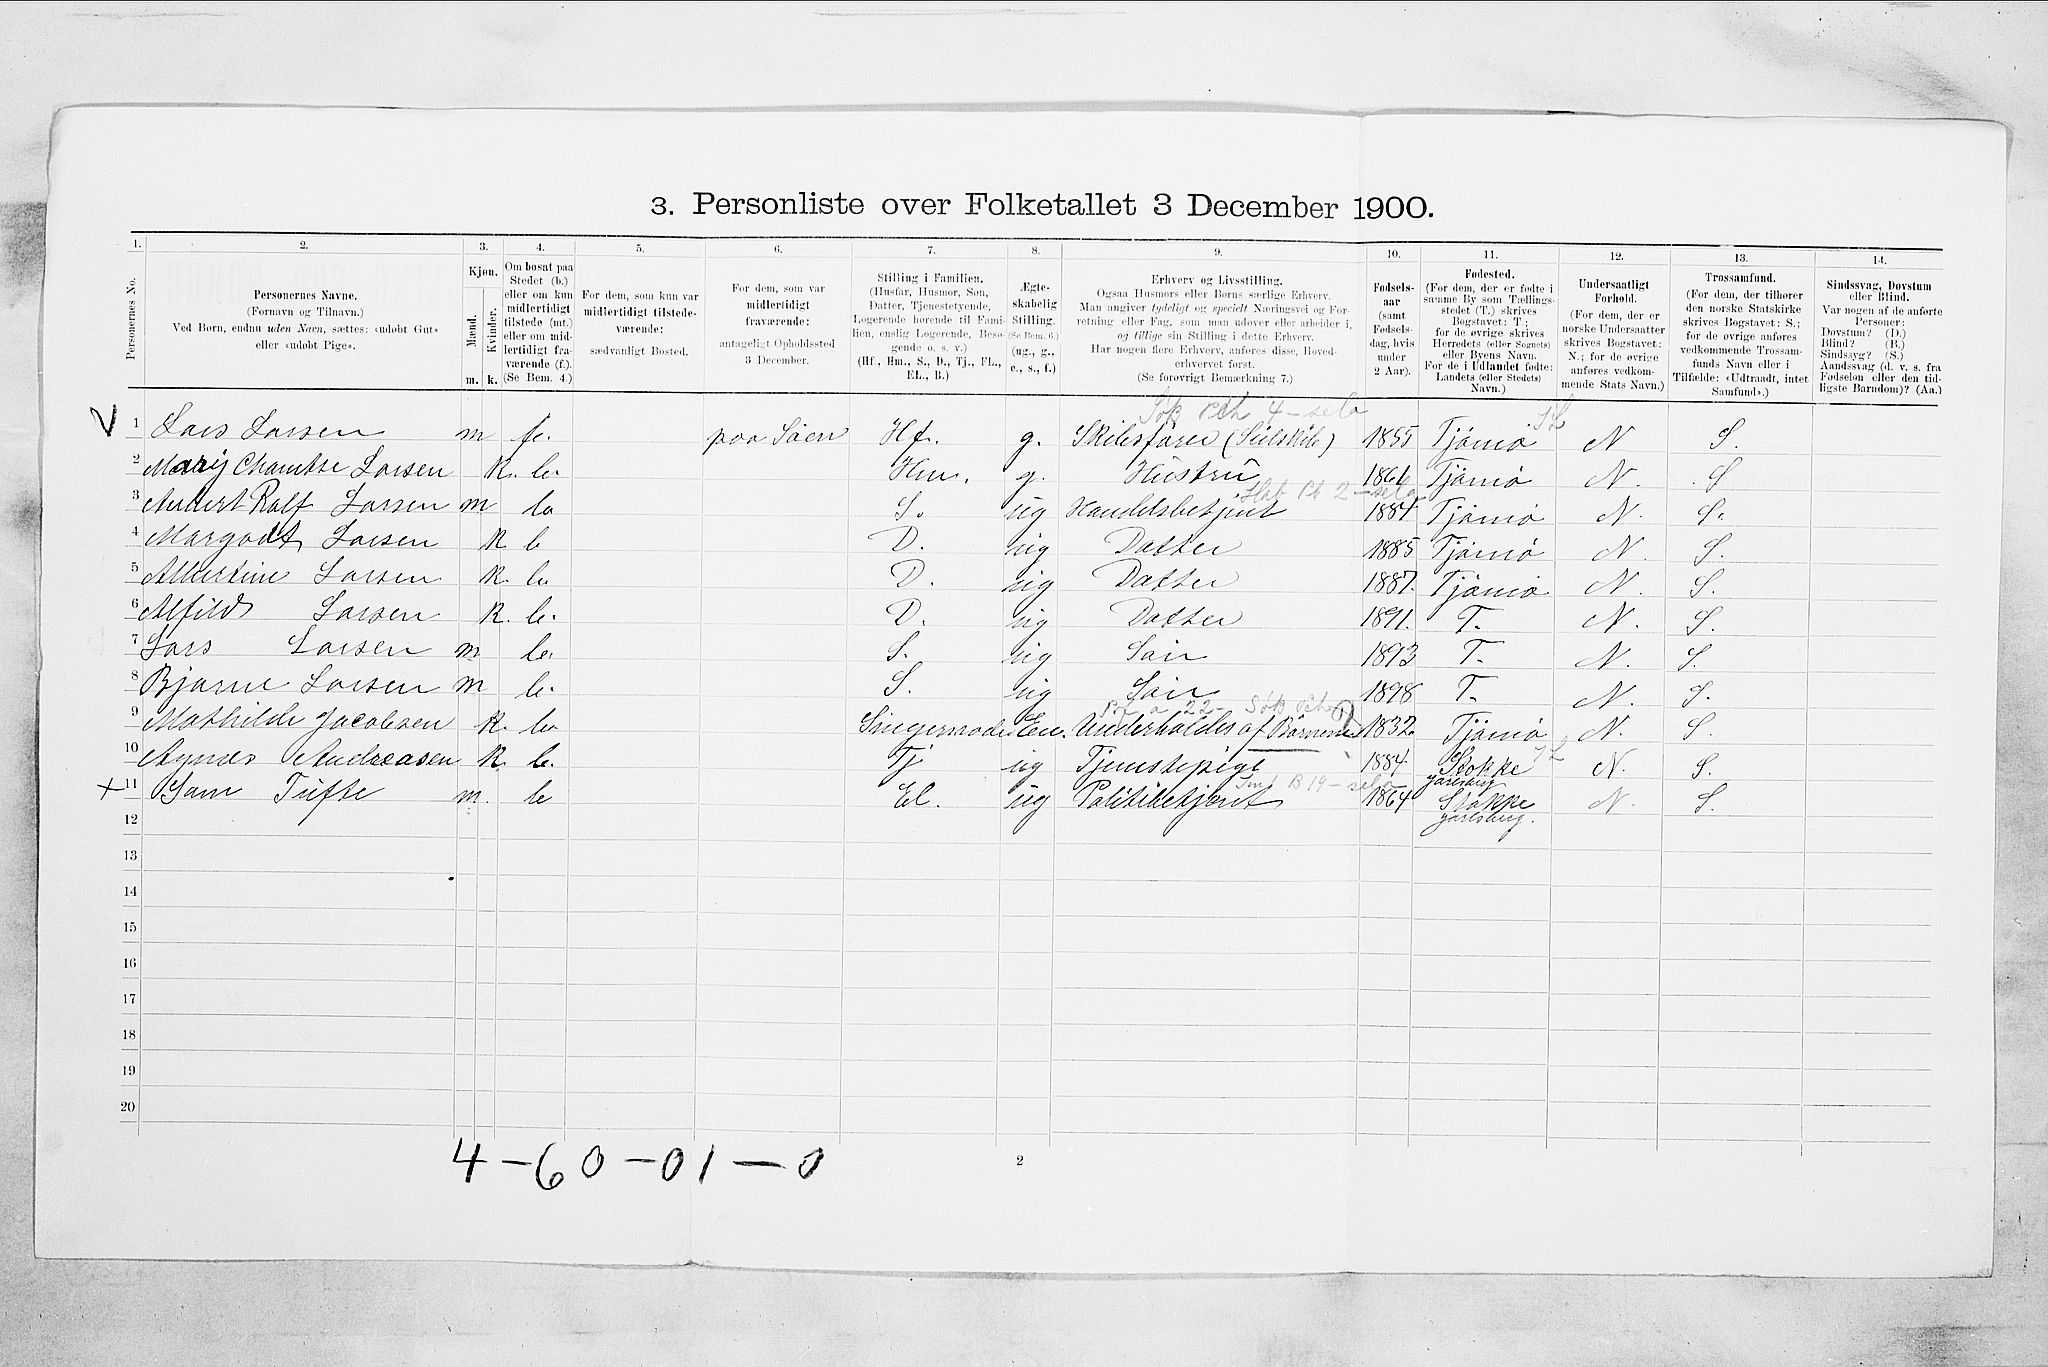 3. Personliste over Folketallet 3 December 1900.
1. 2. 3. 4. 5. 6. 7. 8. 9. 10. 11. 12. 13. 14.
Personernes No.
Personernes Navne.
(Fornavn og Tilnavn.)
Ved Børn, endnu uden Navn, sættes: «udøbt Gut»
eller «udøbt Pige».
Kjøn.
Mænd.
Kvinder.
m. k.
Om bosat paa
Stedet (b.)
eller om kun
midlertidigt
tilstede (mt.)
eller om mid-
lertidigt fra-
værende (f.).
(Se Bem. 4.)
For dem, som kun var
midlertidigt tilstede-
værende:
sædvanligt Bosted.
For dem, som var
midlertidigt
fraværende:
antageligt Opholdssted
3 December.
Stilling i Familien.
(Husfar, Husmor, Søn,
Datter, Tjenestetyende,
Logerende hørende til Fami-
lien, enslig Logerende, Besø-
gende o. s. v.)
(Hf., Hm., S., D., Tj., FL.,
EL., B.)
Ægte-
skabelig
Stilling.
(Se Bem. 6.)
(ug., g.,
e., s., f.)
Erhverv og Livsstilling.
Ogsaa Husmors eller Børns særlige Erhverv.
Man angiver tydeligt og specielt Næringsvei og For-
retning eller Fag, som man udøver eller arbeider i,
og tillige sin Stilling i dette Erhverv.
Har nogen flere Erhverv, anføres disse, Hoved-
erhvervet først.
(Se forøvrigt Bemærkning 7.)
Fødsels-
aar
(samt
Fødsels-
dag, hvis
under
2 Aar).
Fødested.
(For dem, der er fødte i
samme By som Tællings-
stedet (T.) skrives
Bogstavet: T.;
for de øvrige skrives
Herredets (eller Sognets)
eller Byens Navn.
For de i Udlandet fødte:
Landets (eller Stedets)
Navn.)
Undersaatligt
Forhold.
(For dem, der er
norske Undersaatter
skrives Bogstavet:
N.; for de øvrige
anføres vedkom-
mende Stats Navn.)
Trossamfund.
(For dem, der tilhører
den norske Statskirke
skrives Bogstavet: S.;
for de øvrige anføres
vedkommende Trossam-
funds Navn eller i
Tilfælde: «Udtraadt, intet
Samfund».)
Sindssvag, Døvstum
eller Blind.
Var nogen af de anførte
Personer:
Døvstum? (D.)
Blind? (B.)
Sindssyg? (S.)
Aandssvag (d. v. s. fra
Fødselen eller den tid-
ligste Barndom)? (Aa.)
V 1 Lars Larsen m f. paa Söen Hf. g. Skibsförer (Seilskib) 1855 Tjömö N S.
2 Larsen k. b. Hm. g. Hustru 1861 Tjömö N. S
3 Ralf Larsen m b S. ug Handelsbetjent 1884 Tjömö N. S.
4 Margodt Larsen k b D. ug Datter 1885 Tjömö N. S.
5 Albertine Larsen k. b. D. ug Datter 1887. Tjömö N. S.
6 Alfild Larsen k. b. D. ug Datter 1891. T. N. S.
7 Lars Larsen m b. S. ug Sön 1893 T. N. S.
8 Bjarne Larsen m b. S. ug Sön 1898 T. N. S.
9 Mathilde Jacobsen k. b. Svigermoder En. Underholdes af Börnene 1832. Tjömö N. S.
10 Agnes Andreasen k. b. Tj ug Tjenstepige 1884 Stokke N. S.
Jarlsberg
+ 11 Sam Tufte m. b El. ug Politibetjent 1864 Stokke N. S.
Jarlsberg.
12
13
14
15
16
17
18
19
20
4 – 60 – 01 – 0
2